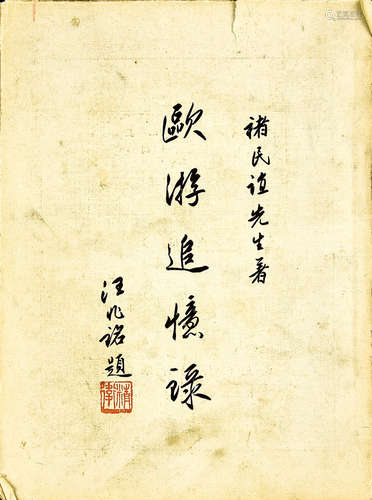 褚民誼先生著
歐游追憶錄
汪兆銘題
精衛